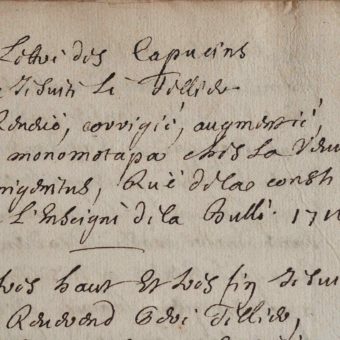 Lettre des Capucins
Jesuite Le Tellier
Reveüe, corrigée, augmentée,
monomotapa chés La Veuve
Unigenitus, Rüe de la Consti
L'Enseigne de la Bulle. 171
haut Et tres fin Jesui
Reverend Pere Tellier,